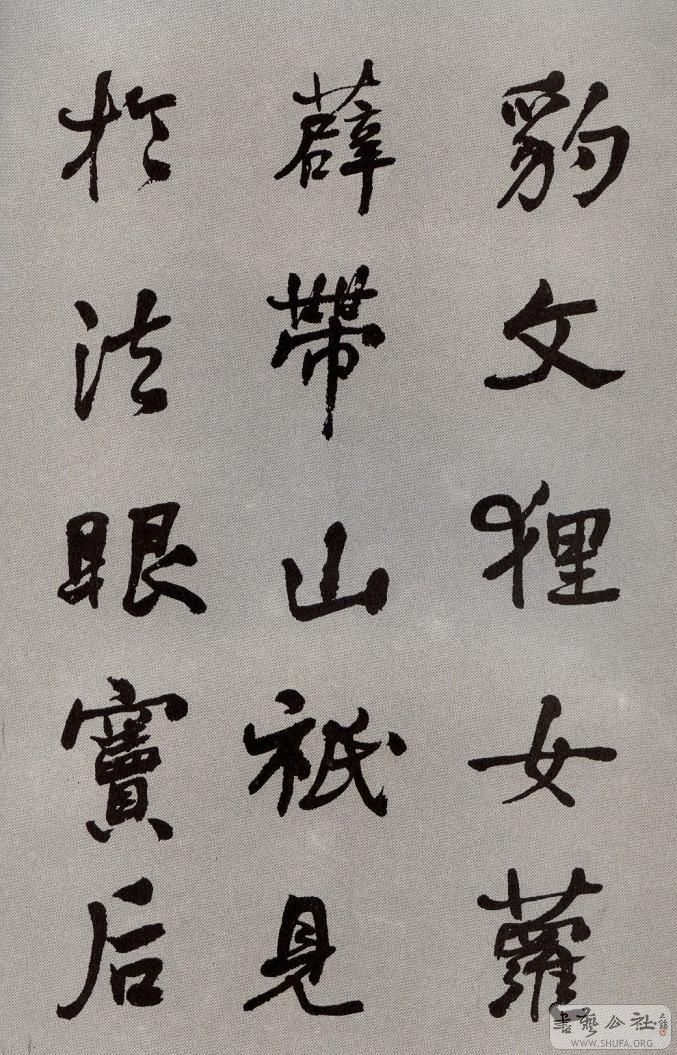 豹文狸女蘿
薜帶山祇見
於法眼竇后
書藝公社
WWW.SHUFA.ORG